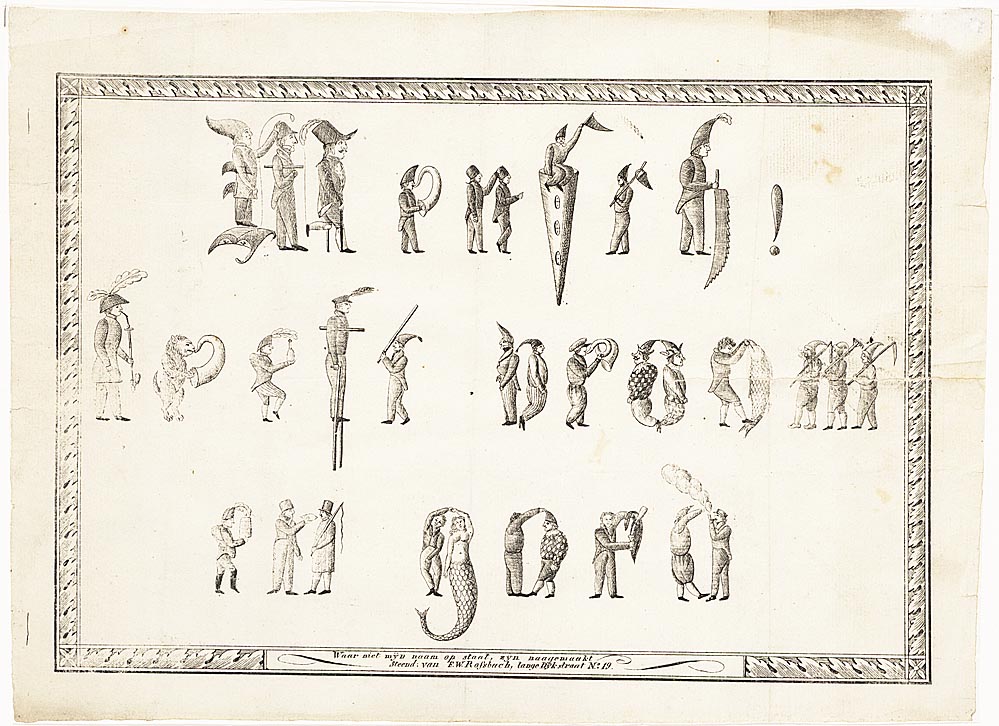 Mensch!
leeft vroom
en goed
Waar niet mÿn naam op staat, zyn naagemaakt
Steend. van F.W. Roſsbach, lange Dÿkstraat No. 19.